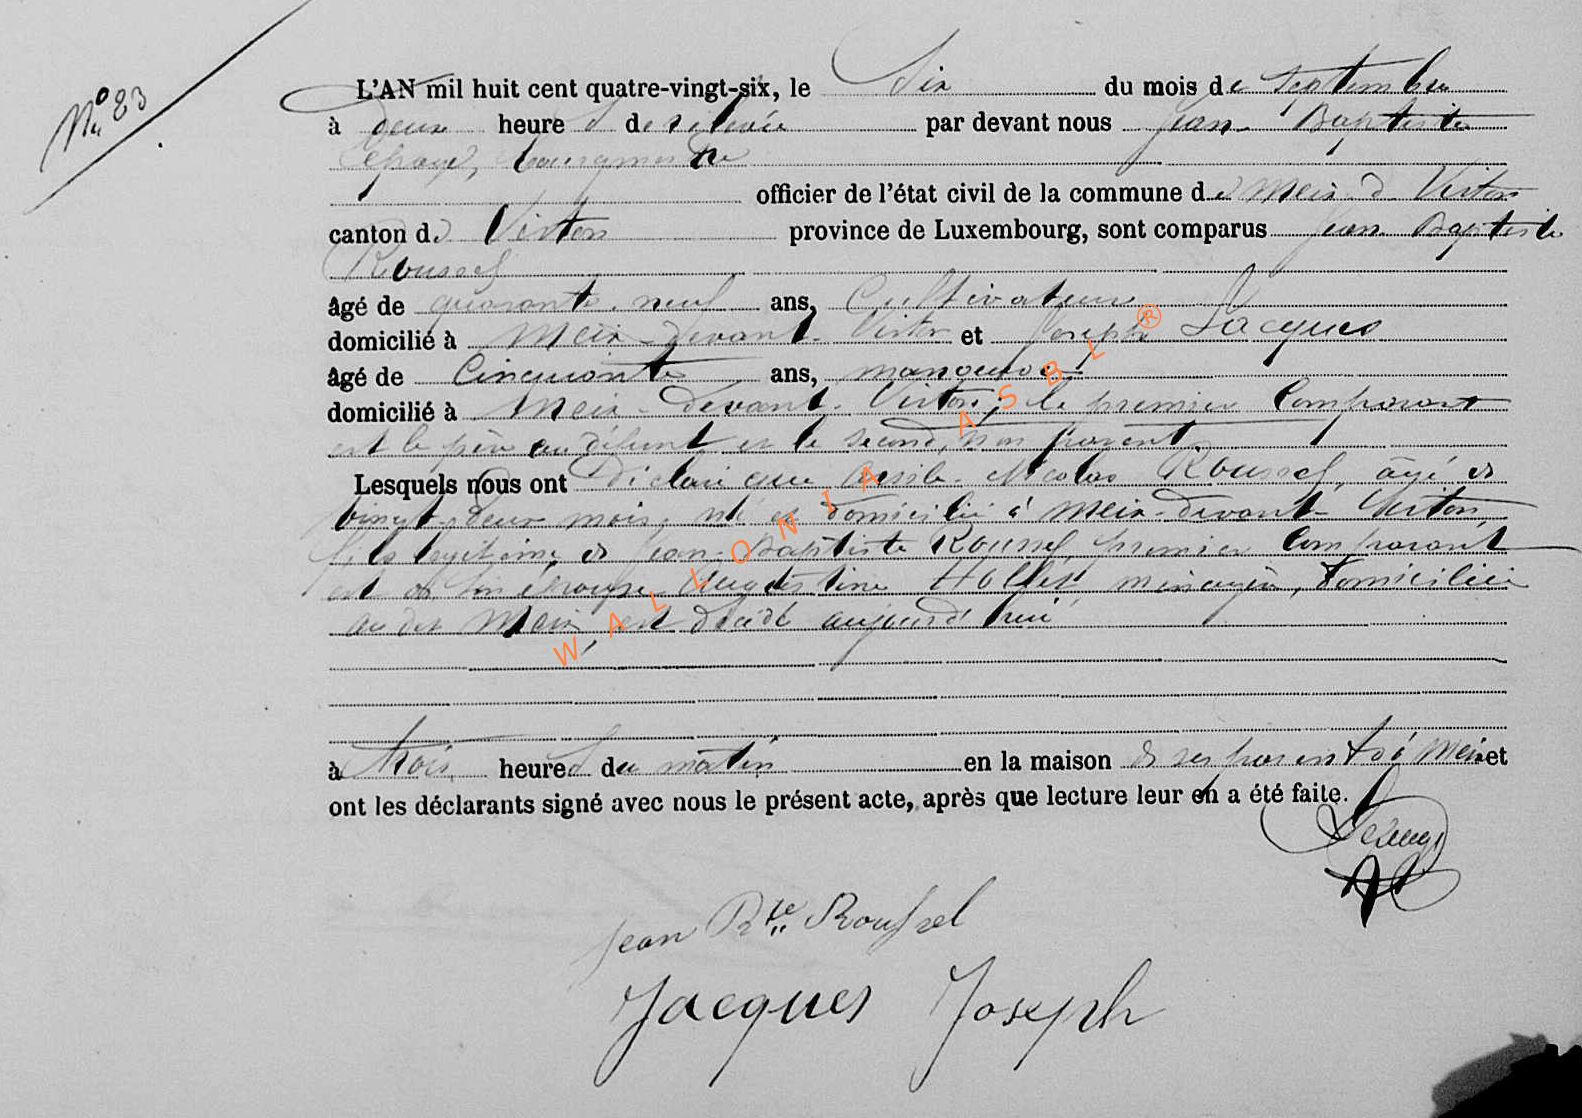 No 23
L'AN mil huit cent quatre-vingt-six, le Six du mois de Septembre
à deux heures de relevée par devant nous Jean-Baptiste
bourgmestre
officier de l'état civil de la commune de Meix-d-Virton
canton de Virton province de Luxembourg, sont comparus Jean Baptiste
Roussel
âgé de quarante-neuf ans, Cultivateur
domicilié à Meix-devant-Virton et Joseph Jacques
âgé de Cinquante ans, manoeuvre
domicilié à Meix-devant-Virton; le premier Comparant
est le père du défunt et le second, non parent
Lesquels nous ont déclaré que Nicolas Roussel, âgé de
vingt-deux mois, né et domicilié à Meix-devant-Virton,
fils légitime de Jean-Baptiste Roussel premier Comparant
et de son épouse Augustine ménagère, domiciliée
au dit Meix, est décédé aujourd'hui
à trois heures du matin en la maison de ses parents à Meix et
ont les déclarants signé avec nous le présent acte, après que lecture leur en a été faite.
Jean Bte Roussel
Jacques Joseph
WALLONIA ASBL ®